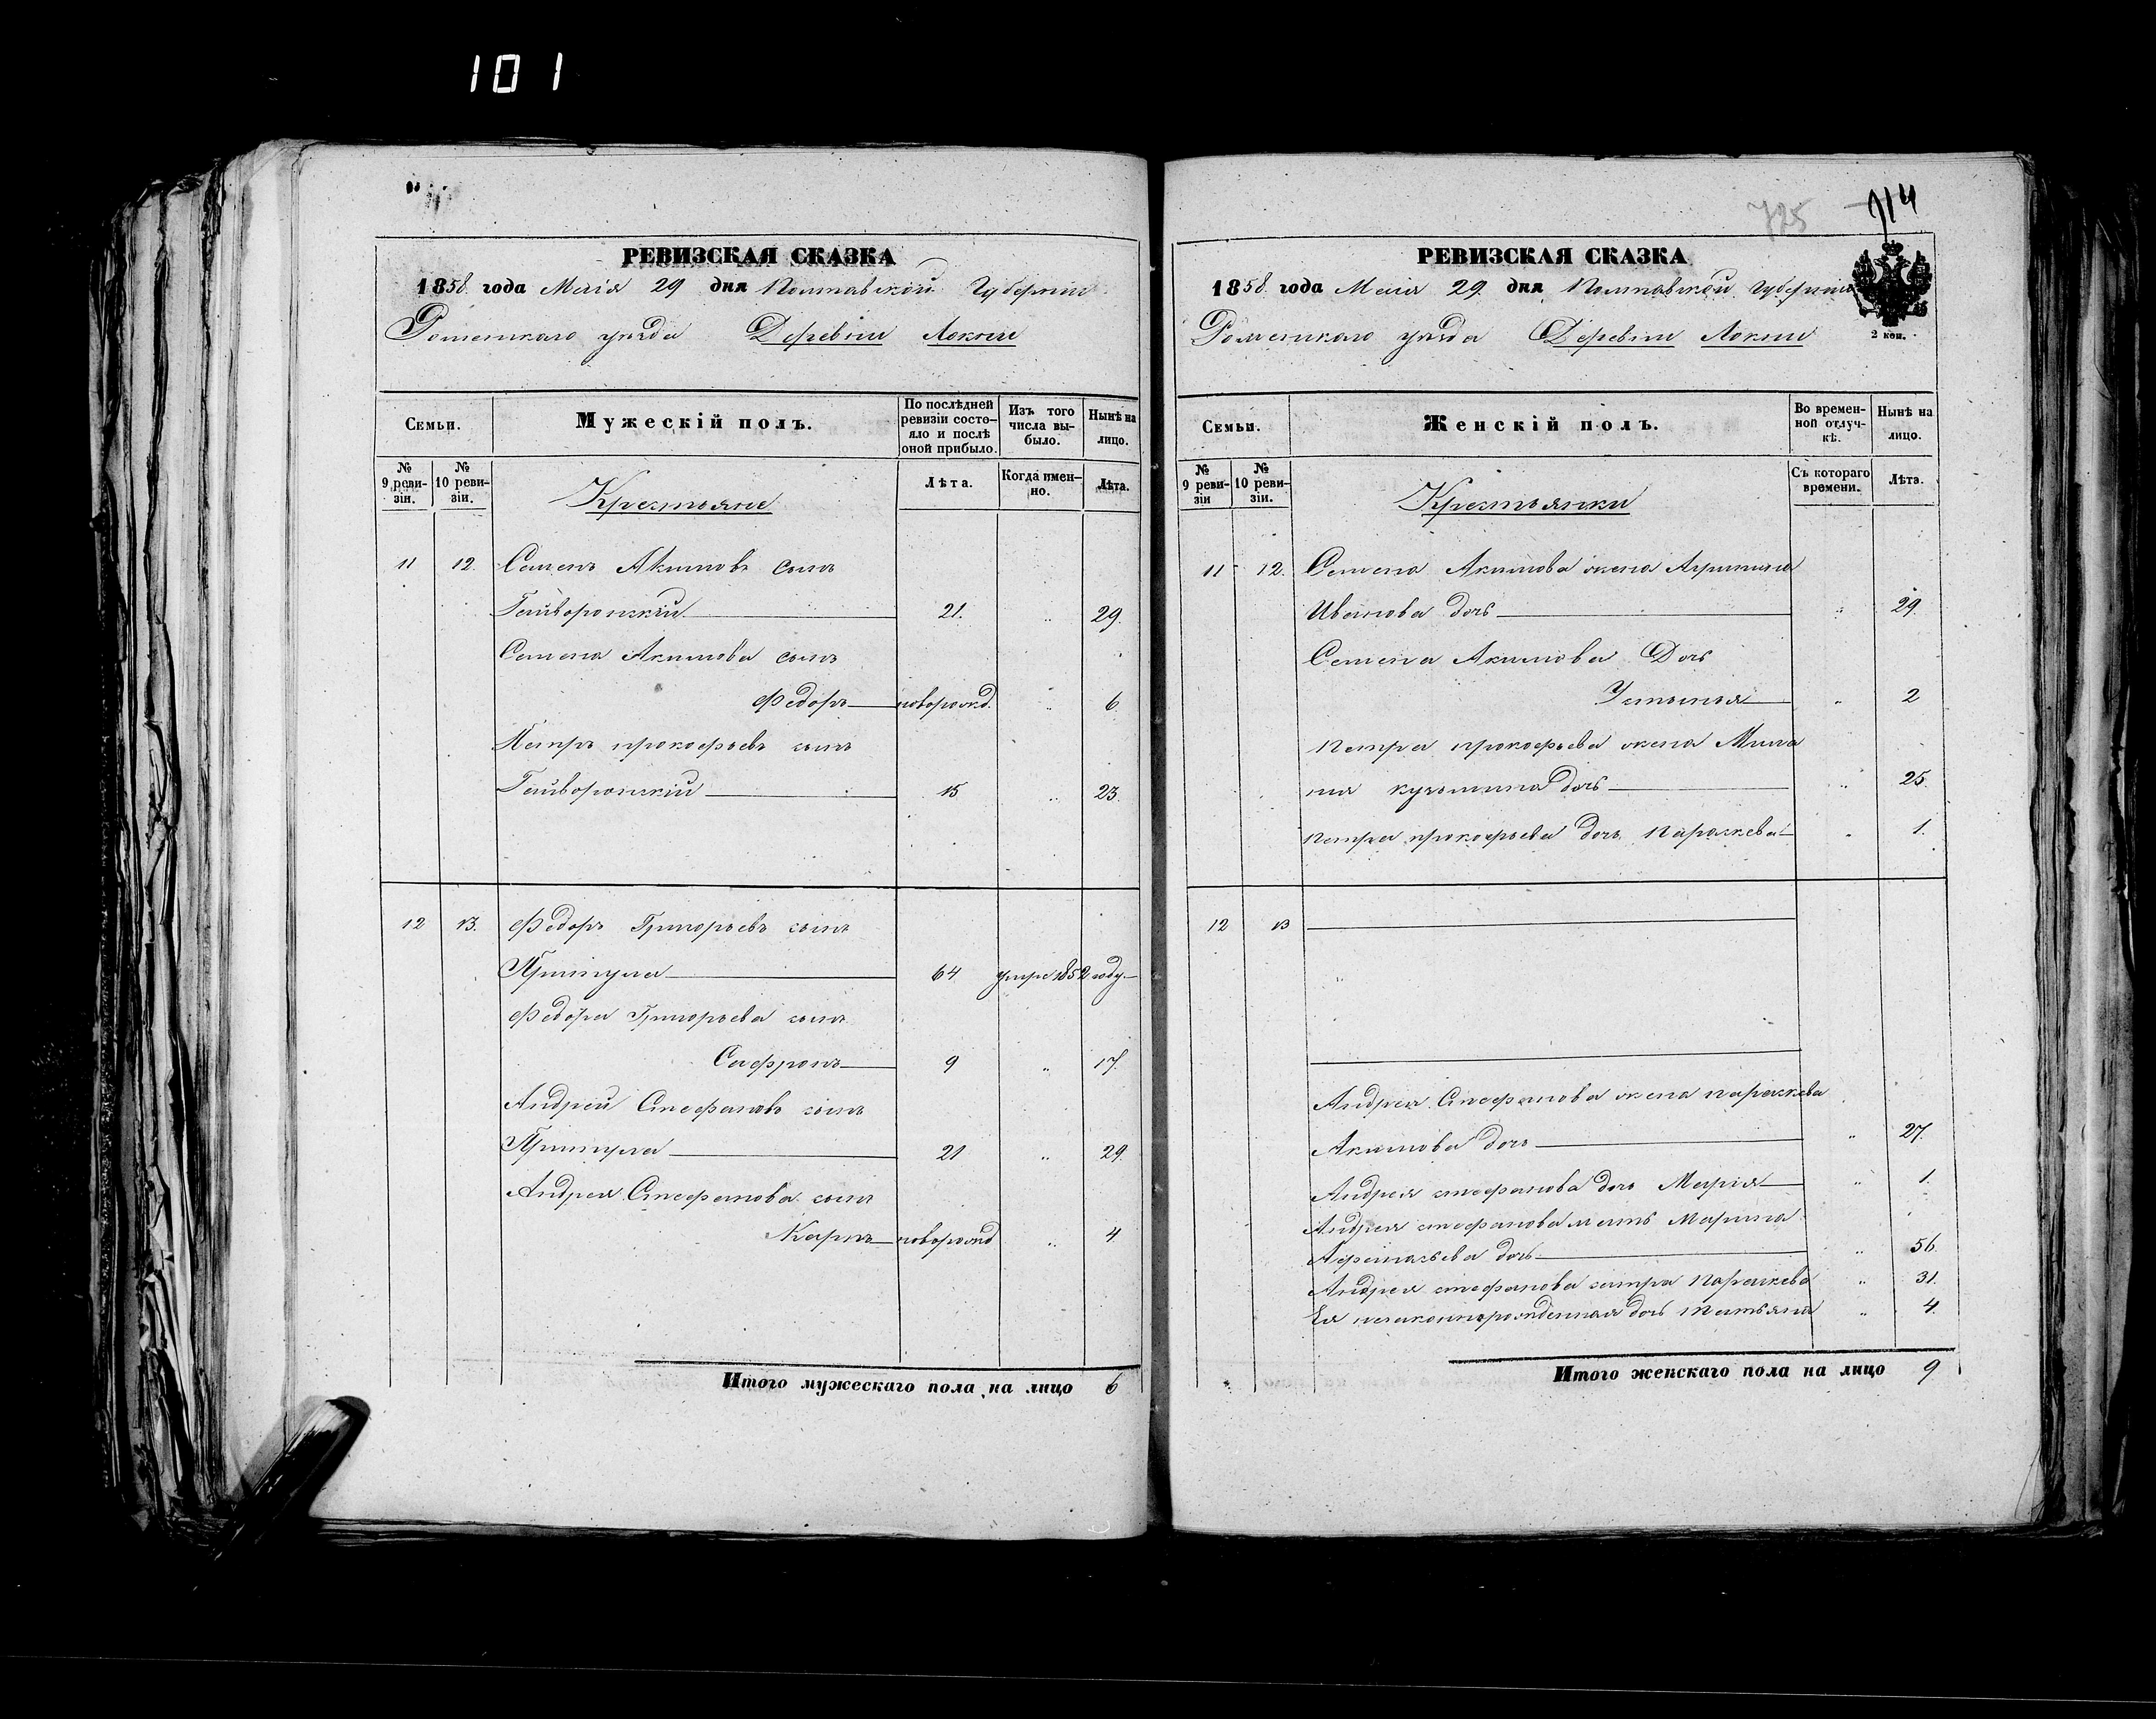 101
РЕВИЗСКАЯ СКАЗКА
1858 года Маія 29 дня Полтавской Губерніи
Роменскаго уѣзда Деревни Локни
Семьи.
Мужескій полъ.
По послѣдней ревизіи состояло и послѣ оной прибыло.
Изъ того числа выбыло.
Нынѣ на лицо.
№ 9 ревизіи.
№ 10 ревизіи.
Крестьяне
Лѣта.
Когда именно.
Лѣта.
11 12. Семенъ Акимовъ сынъ
Гайворонскій 21. „ 29.
Семена Акимова сынъ
Федоръ новорожд. „ 6
Петръ прокофьевъ сынъ
Гайворонскій 15 „ 23.
12 13. Федоръ Григорьевъ сынъ
Притула 64 умре 1852 году
Федора Григорьева сынъ
Сафронъ 9 „ 17.
Андрей Стефановъ сынъ
Притула 21 „ 29.
Андрея Стефанова сынъ
Карпъ новорожд „ 4
Итого мужескаго пола на лицо 6
725 714
РЕВИЗСКАЯ СКАЗКА
1858 года Маія 29 дня Полтавской Губерніи
Роменскаго уѣзда Деревни Локни
2 коп.
Семьи.
Женскій полъ.
Во временной отлучкѣ.
Нынѣ на лицо.
№ 9 ревизіи
№ 10 ревизіи.
Крестьянки
Съ котораго времени.
Лѣта.
11 12. Семена Акимова жена
Иванова дочь „ 29.
Семена Акимова Дочь
Устинья „ 2
Петра прокофьева жена
кузьмина дочь „ 25.
петра прокофьева дочь параскева „ 1.
12 13
Андрея Стефанова жена параскева
Акимова дочь „ 27.
Андрея стефанова дочь Марія „ 1.
Андрея стефанова мать Марина
Афанасьева дочь „ 56
Андрея стефанова сестра параскева „ 31.
Ея незаконнорожденная дочь татьяна „ 4.
Итого женскаго пола на лицо 9